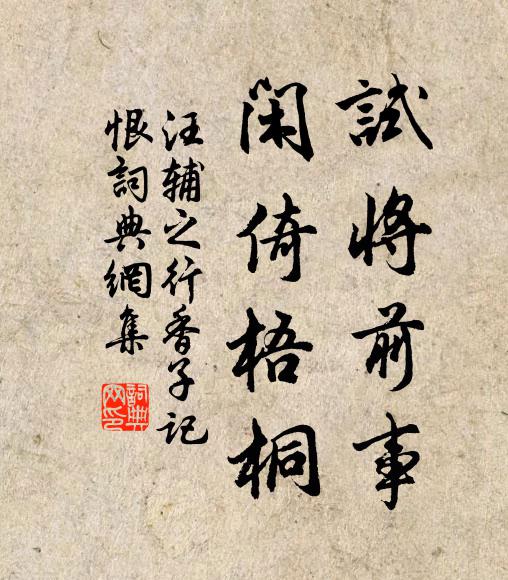 試將前事
閑倚梧桐
汪辅之行香子記
恨詞典網集
詞典網印